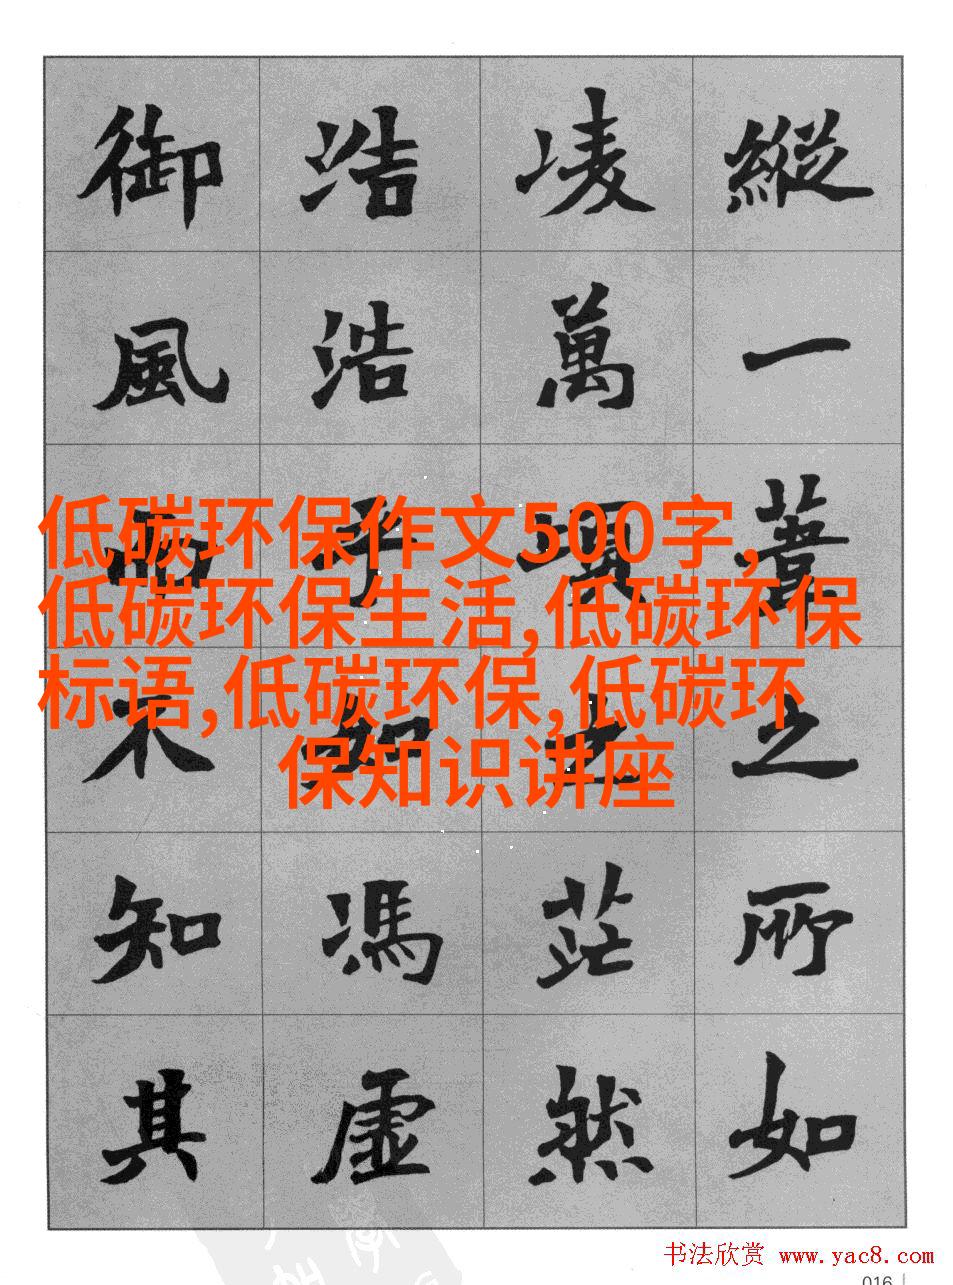 縱一葦之所如
凌萬頃之茫然
浩浩乎如馮虛
御風而不知其
低碳环保作文500字,
低碳环保生活,低碳环保
标语,低碳环保,低碳环
保知识讲座
书法欣赏 www.yac8.com
016